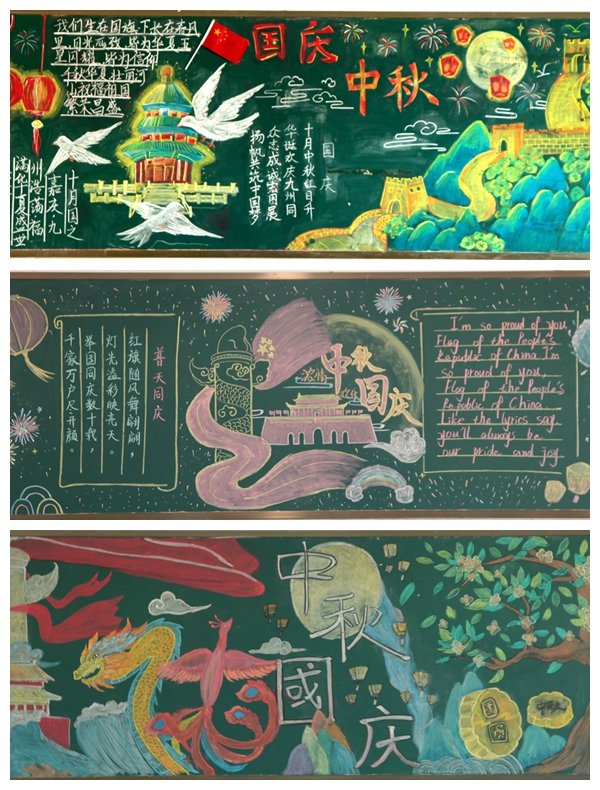 我们生在国旗下长在春风
里,目光所致,皆为华夏五
星闪耀,皆为信仰
千秋华夏壮山河
祖国
繁荣昌盛
十月国之
嘉庆·九
州浩满福
满华夏盛世
国庆
中秋
国庆
十月中秋红日升
华诞欢庆九州同
众志成诚宏图展
扬帆共筑中国梦
普天同庆
红旗随风舞翩翩,
灯光溢彩映亮天。
举国同庆数十载,
千家万户尽开颜。
浓情
中秋
欢乐
国庆
I'm so proud of you
Flag of the People's
Republic of China I'm
so proud of you,
flag of the People's
Republic of China
Like the lyrics say
you'll always be
our pride and joy
中秋
國庆
国庆
中秋